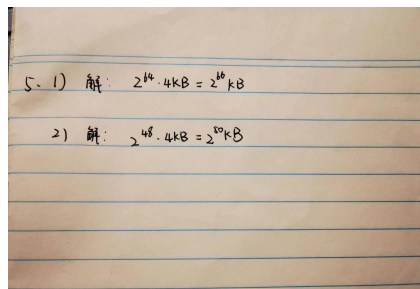 5. 1) 解: 2^64 · 4KB = 2^66 KB
2) 解: 2^48 · 4KB = 2^50 KB